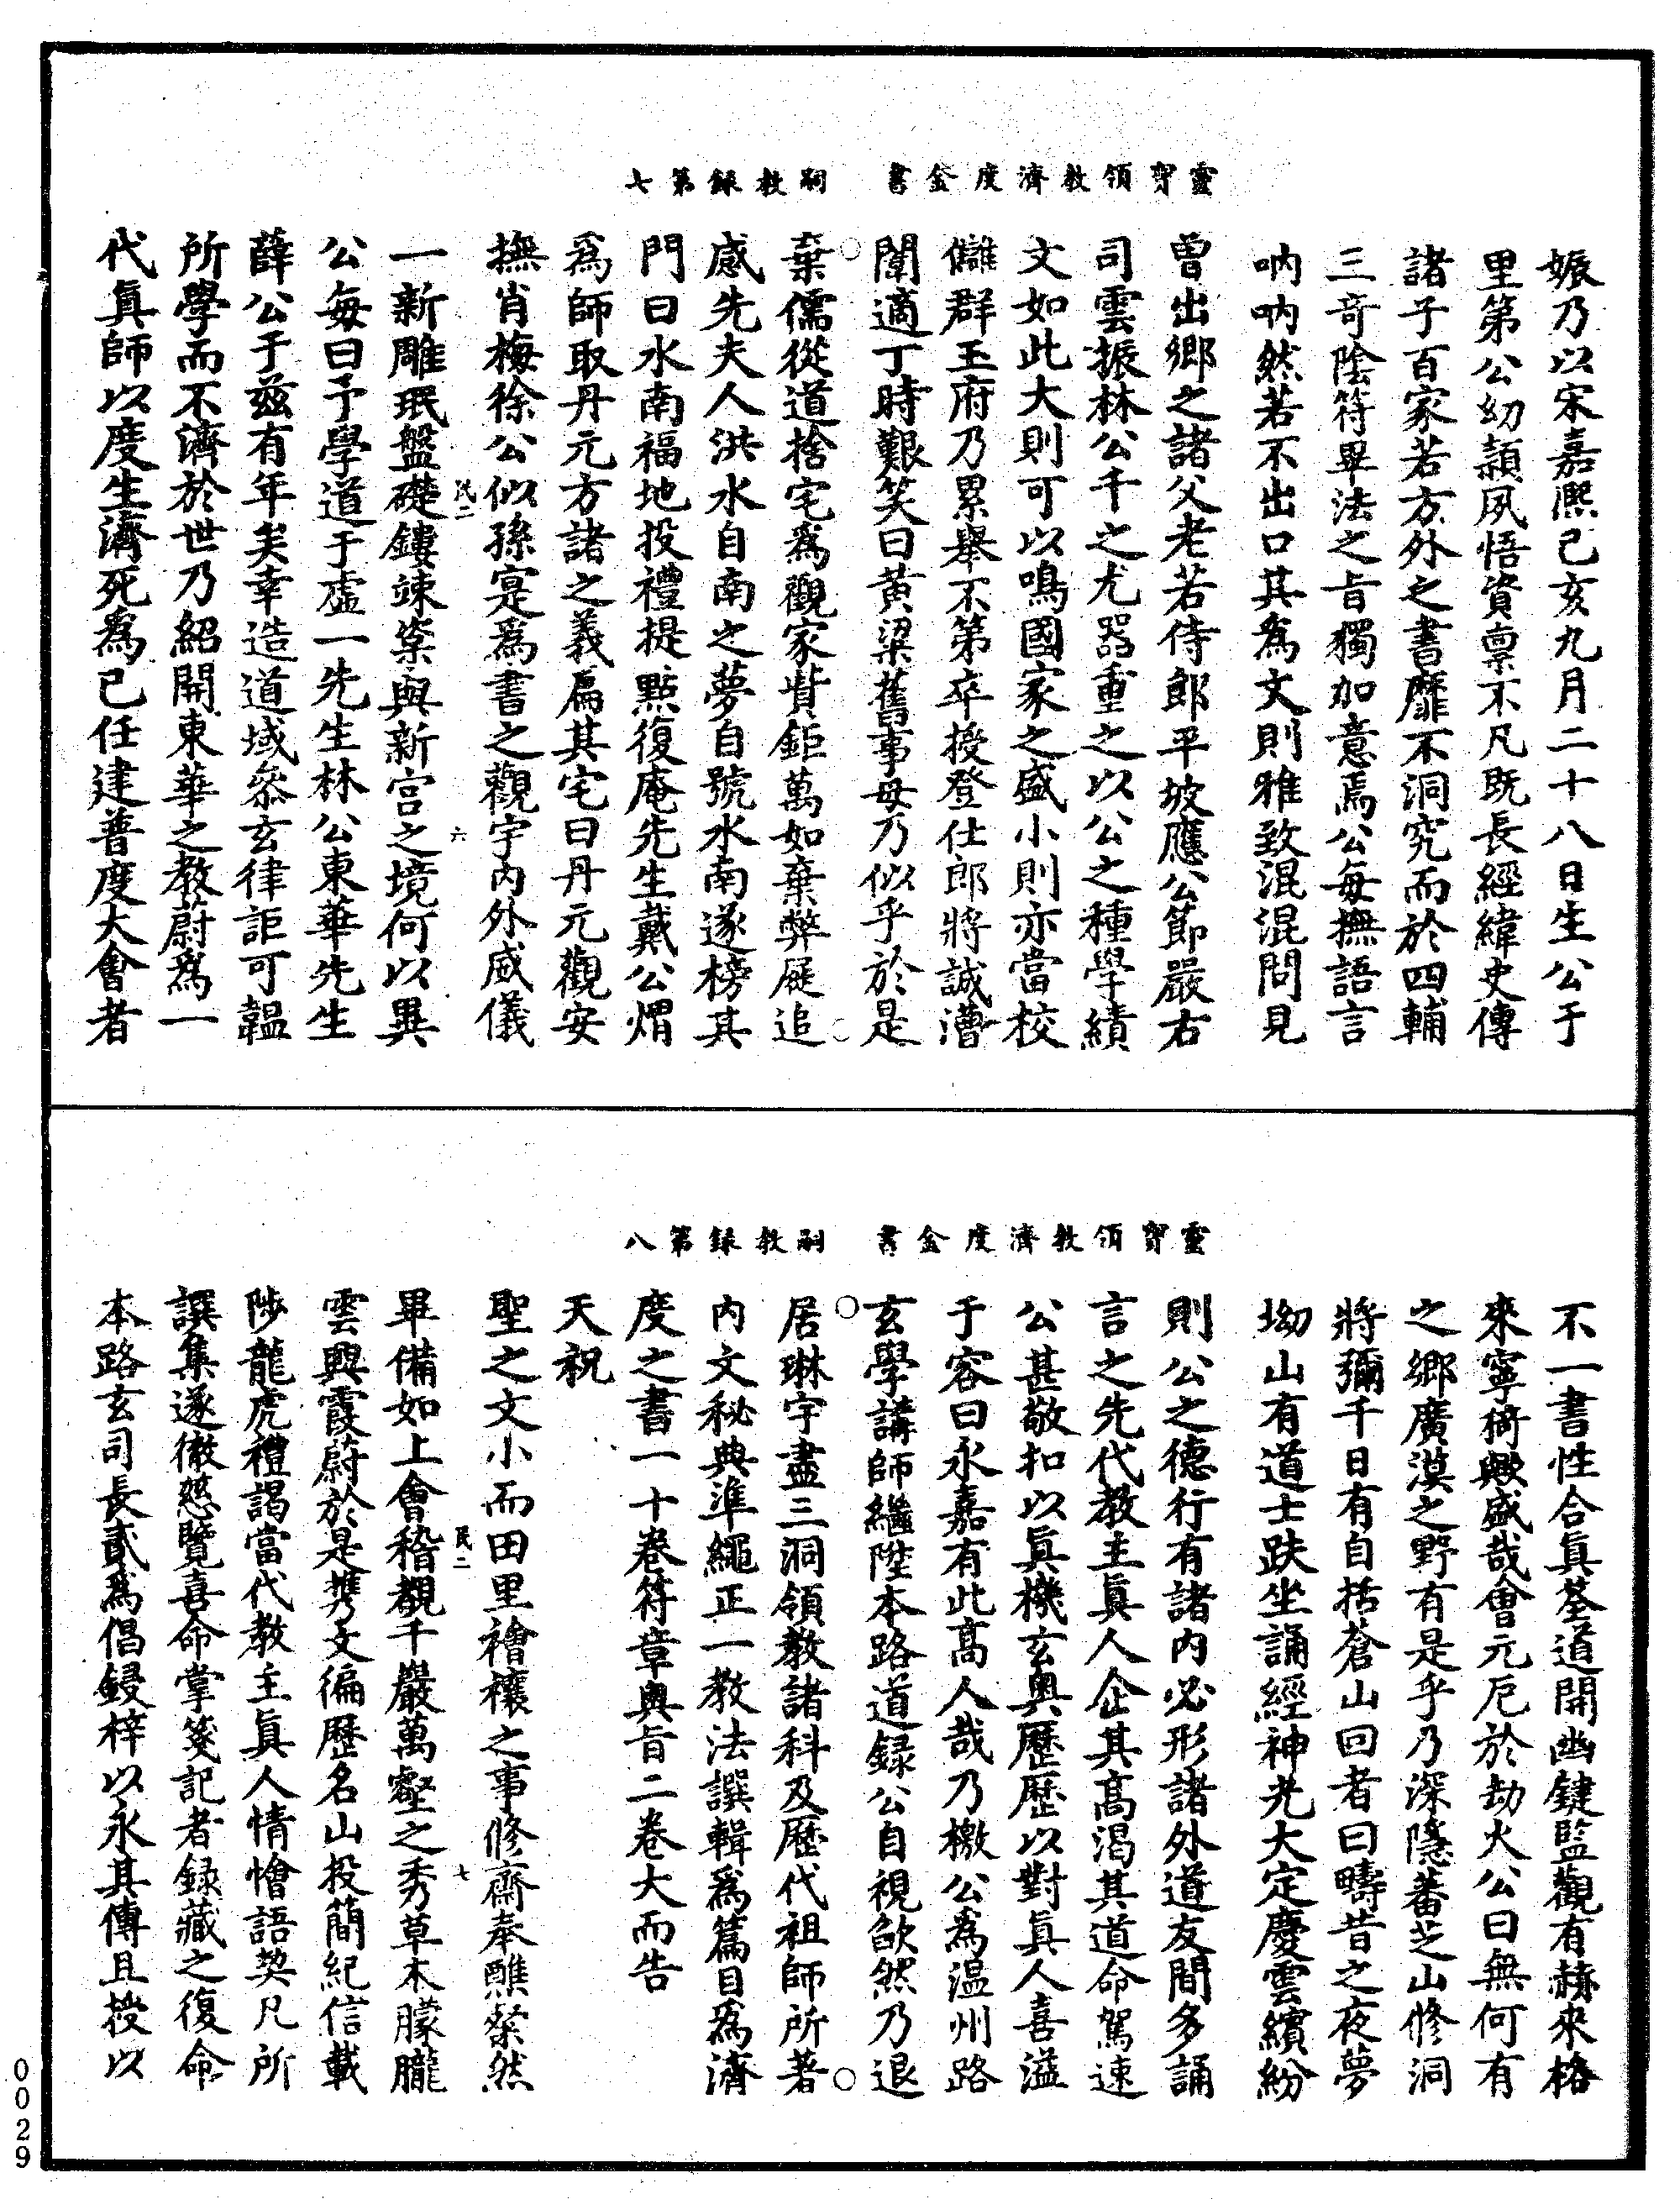 靈寶領教濟度金書 嗣教錄第七
娠乃以宋嘉熙己亥九月二十八日生公于
里第公幼穎夙悟資禀不凡既長經緯史傳
諸子百家若方外之書靡不洞究而於四輔
三奇陰符畢法之旨獨加意焉公每撫語言
吶吶然若不出口其爲文則雅致混混問見
曾出鄉之諸父老若侍郎平坡應公節嚴右
司雲振林公千之尤器重之以公之種學績
文如此大則可以鳴國家之盛小則亦當校
讎群玉府乃累舉不第卒授登仕郎將試漕
闈適丁時艱笑曰黃粱舊事毋乃似乎於是
棄儒從道捨宅爲觀家貲鉅萬如棄弊屣追
感先夫人洪水自南之夢自號水南遂榜其
門曰水南福地投禮提點復庵先生戴公煟
爲師取丹元方諸之義扁其宅曰丹元觀安
撫肖梅徐公似孫寔爲書之觀宇內外威儀
民二 六
一新雕珉盤礎鏤竦楶與新宫之境何以異
公每曰予學道于虛一先生林公東華先生
薛公于兹有年矣幸造道域叅玄律詎可韞
所學而不濟於世乃紹開東華之教蔚爲一
代真師以度生濟死爲己任建普度大會者
靈寶領教濟度金書 嗣教録第八
不一書性合真荃道開幽鍵監觀有赫來格
來寧猗歟盛哉會元厄於劫火公曰無何有
之鄉廣漠之野有是乎乃深隱蕃芝山修洞
將彌千日有自括蒼山回者曰疇昔之夜夢
坳山有道士趺坐誦經神光大定慶雲繽紛
則公之德行有諸内必形諸外道友間多誦
言之先代教主真人企其高渴其道命駕速
公甚敬扣以真機玄奧歷歷以對真人喜溢
于容曰永嘉有此高人哉乃檄公爲温州路
玄學講師繼陞本路道録公自視欿然乃退
居琳宇盡三洞領教諸科及歷代祖師所著
内文秘典準繩正一教法譔輯爲篇目爲濟
度之書一十卷符章奥旨二卷大而告
天祝
聖之文小而田里禬禳之事修齋奉醮粲然
民二 七
畢備如上會稽覩千巖萬壑之秀草木朦朧
雲興霞蔚於是携文徧歷名山投簡紀信載
陟龍虎禮謁當代教主真人情憺語契凡所
譔集遂徹慈覽喜命掌箋記者録藏之復命
本路玄司長貳爲倡鋟梓以永其傳且授以
0029